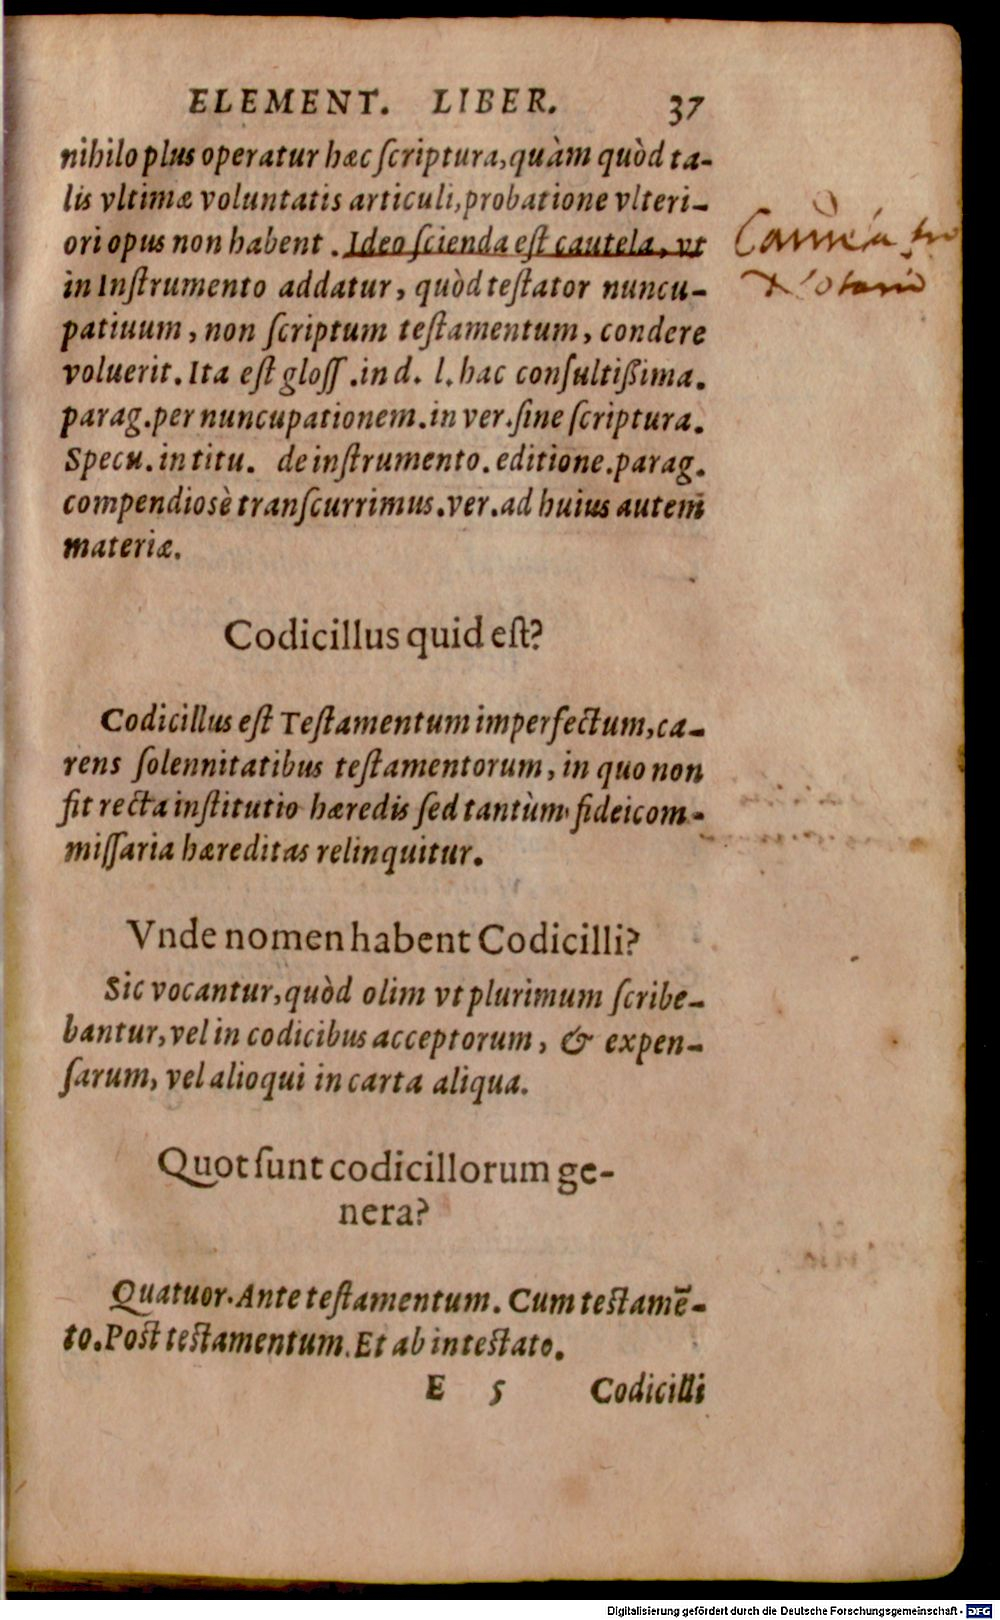 ELEMENT. LIBER. 37
nihilo plus operatur hæc ſcriptura, quàm quòd ta-
lis vltimæ voluntatis articuli, probatione vlteri-
ori opus non habent. Ideo ſcienda eſt cautela, vt
in Inſtrumento addatur, quòd teſtator nuncu-
patiuum, non ſcriptum teſtamentum, condere
voluerit. Ita eſt gloſſ. in d. l. hac conſultiſsima.
parag. per nuncupationem. in ver. ſine ſcriptura.
Specu. in titu. de inſtrumento. editione. parag.
compendiosè tranſcurrimus. ver. ad huius autem
materiæ.
Codicillus quid eſt?
Codicillus eſt Teſtamentum imperfectum, ca-
rens ſolennitatibus teſtamentorum, in quo non
fit recta inſtitutio hæredis ſed tantùm fideicom-
miſſaria hæreditas relinquitur.
Vnde nomen habent Codicilli?
Sic vocantur, quòd olim vt plurimum ſcribe-
bantur, vel in codicibus acceptorum, & expen-
ſarum, vel alioqui in carta aliqua.
Quot ſunt codicillorum ge-
nera?
Quatuor. Ante teſtamentum. Cum teſtamē-
to. Poſt teſtamentum. Et ab inteſtato.
E 5 Codicilli
Digitalisierung gefördert durch die Deutsche Forschungsgemeinschaft - DFG